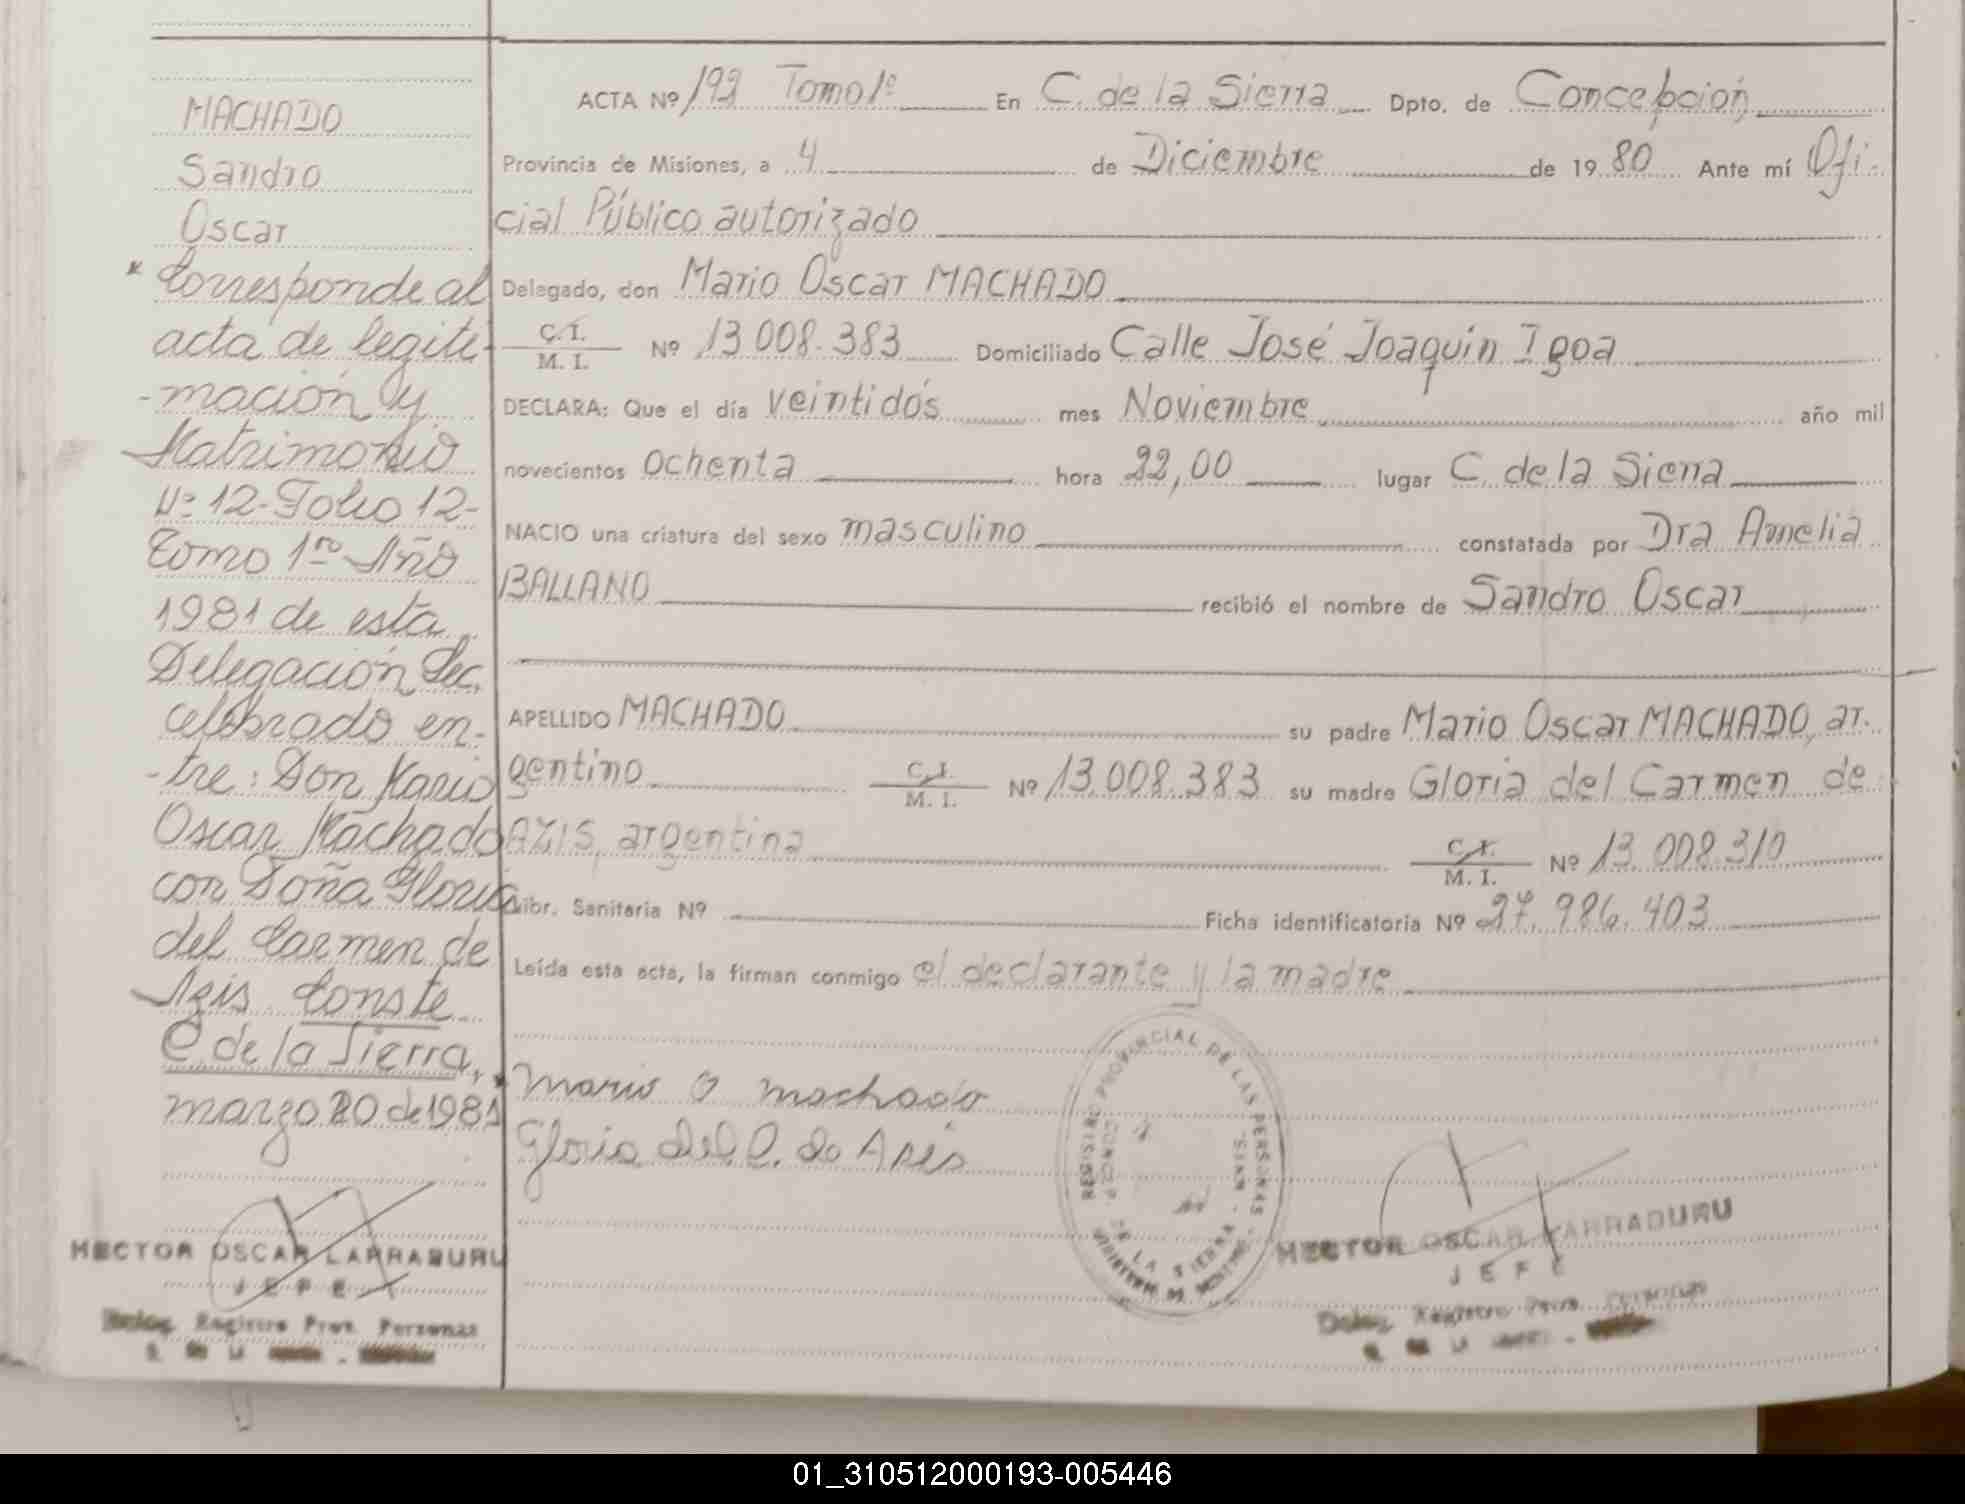 MACHADO
Sandro
Oscar
* Corresponde al
acta de legiti-
-mación y
Matrimonio
Nº 12-Folio 12-
Tomo 1ro Año
1981 de esta
Delegación Sec.
celebrado en-
-tre: Don Mario
Oscar Machado
con Doña Gloria
del Carmen de
Azis. Conste
C. de la Sierra,
marzo 20 de 1981
HECTOR OSCAR LARRABURU
JEFE
Deleg. Registro Prov. Personas
ACTA Nº 192 Tomo 1º En C. de la Sierra Dpto. de Concepción
Provincia de Misiones, a 4 de Diciembre de 1980 Ante mí Ofi-
cial Público autorizado
Delegado, don Mario Oscar MACHADO
C. I.
M. I. Nº 13.008.383 Domiciliado Calle José Joaquin Igoa
DECLARA: Que el día veintidós mes Noviembre año mil
novecientos ochenta hora 22,00 lugar C. de la Sierra
NACIO una criatura del sexo masculino constatada por Dra Amelia
BALLANO recibió el nombre de Sandro Oscar
APELLIDO MACHADO su padre Mario Oscar MACHADO, ar-
gentino C. I.
M. I. Nº 13.008.383 su madre Gloria del Carmen de
AZIS, argentina C. I.
M. I. Nº 13.008.310
Libr. Sanitaria Nº Ficha identificatoria Nº 27.986.403
Leída esta acta, la firman conmigo el declarante y la madre
Mario O Machado
Gloria del C. de Asis
REGISTRO PROVINCIAL DE LAS PERSONAS
CONCEP. DE LA SIERRA
HECTOR OSCAR LARRABURU
JEFE
Deleg. Registro Prov. Personas
01_310512000193-005446